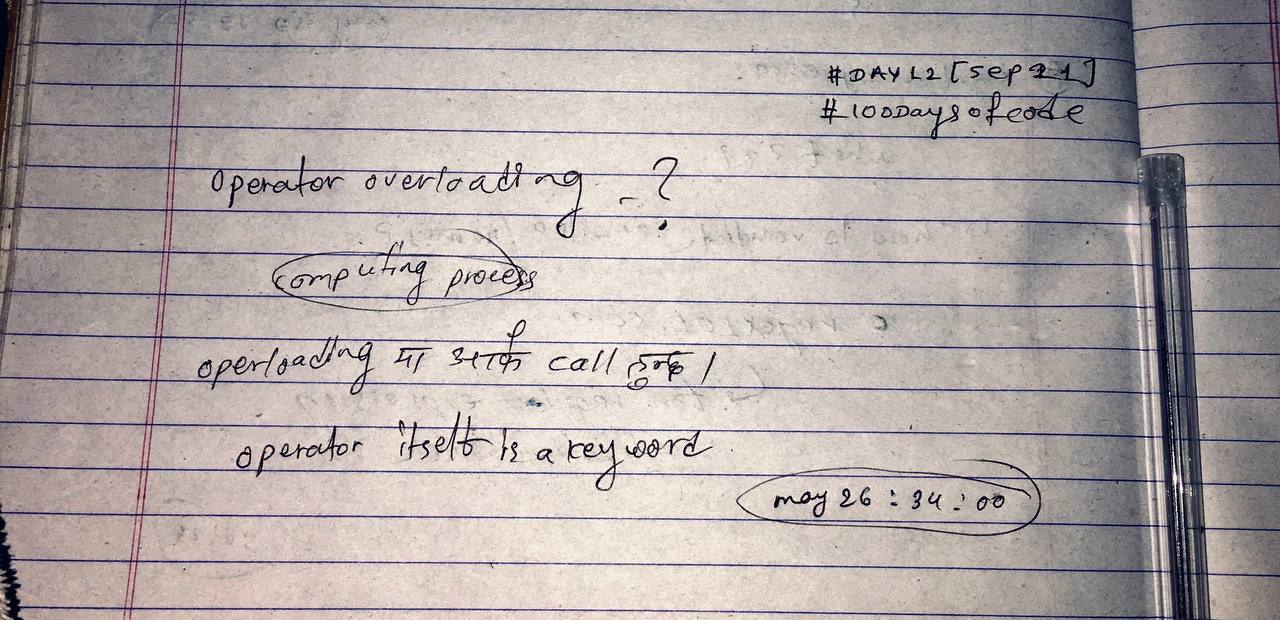 #DAY12 [Sep 21]
#100Daysofcode
Operator overloading - ?
computing process
operloading मा अर्को call हुन्छ।
operator itself is a keyword
may 26 : 34 : 00